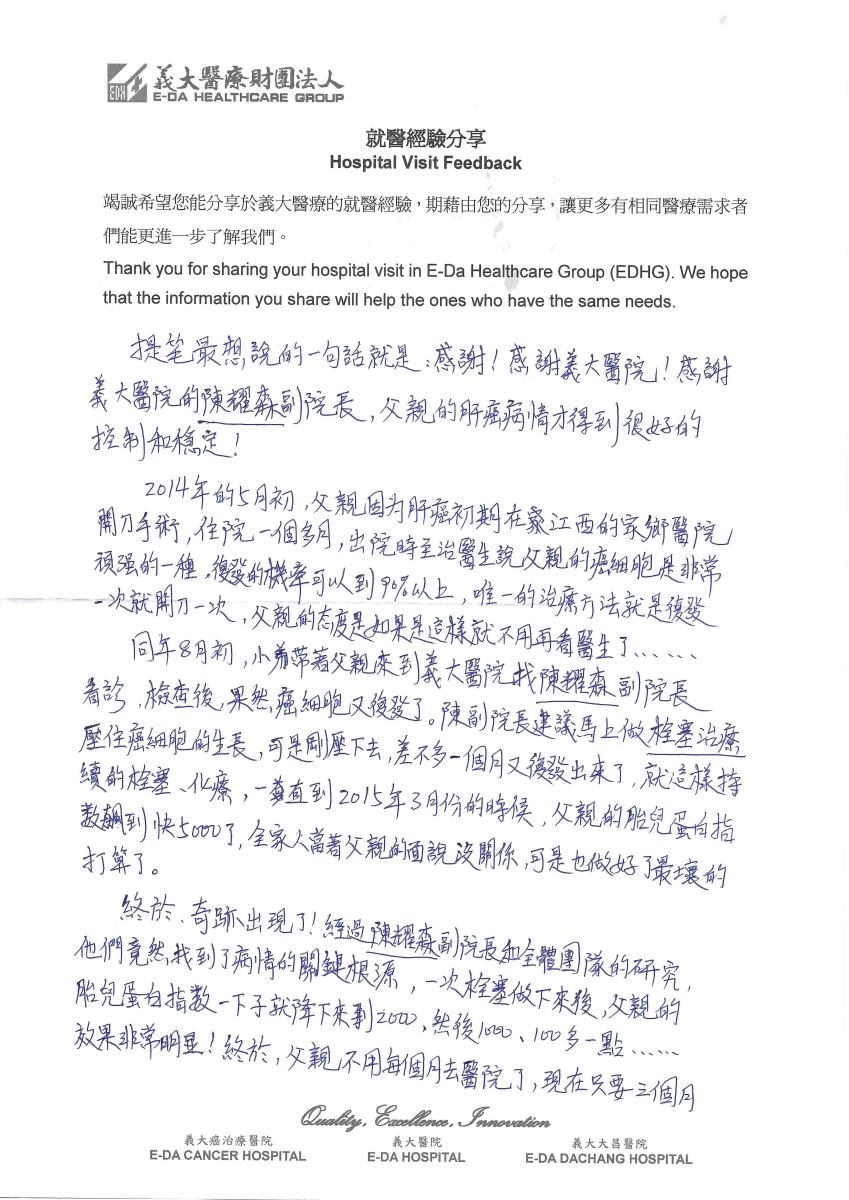 EDH 義大醫療財團法人
E-DA HEALTHCARE GROUP
就醫經驗分享
Hospital Visit Feedback
竭誠希望您能分享於義大醫療的就醫經驗，期藉由您的分享，讓更多有相同醫療需求者
們能更進一步了解我們。
Thank you for sharing your hospital visit in E-Da Healthcare Group (EDHG). We hope
that the information you share will help the ones who have the same needs.
提笔最想說的一句話就是：感謝！感謝義大醫院！感謝
義大醫院的陳耀森副院長，父親的肝癌病情才得到很好的
控制和穩定！
2014年的5月初，父親因为肝癌初期在江西的家鄉醫院
開刀手術，住院一個多月，出院時主治醫生說父親的癌細胞是非常
頑强的一種，復發的機率可以到90%以上，唯一的治療方法就是復發
一次就開刀一次，父親的态度是如果是這樣就不用再看醫生了……
同年8月初，小弟带著父親來到義大醫院找陳耀森副院長
看診，檢查後，果然癌細胞又復發了。陳副院長建議馬上做栓塞治療
壓住癌細胞的生長，可是剛壓下去，差不多一個月又復發出來了，就這樣持
續的栓塞、化療，一直到2015年3月份的時候，父親的胎兒蛋白指
数飆到快5000了，全家人當著父親的面說沒關係，可是也做好了最壞的
打算了。
終於、奇跡出現了！經過陳耀森副院長和全體團隊的研究，
他們竟然找到了病情的關鍵根源，一次栓塞做下來後，父親的
胎兒蛋白指数一下子就降下來到2000、然後1000、100多一點……
效果非常明显！終於，父親不用每個月去醫院了，現在只要三個月
Quality, Excellence, Innovation
義大癌治療醫院 義大醫院 義大大昌醫院
E-DA CANCER HOSPITAL E-DA HOSPITAL E-DA DACHANG HOSPITAL